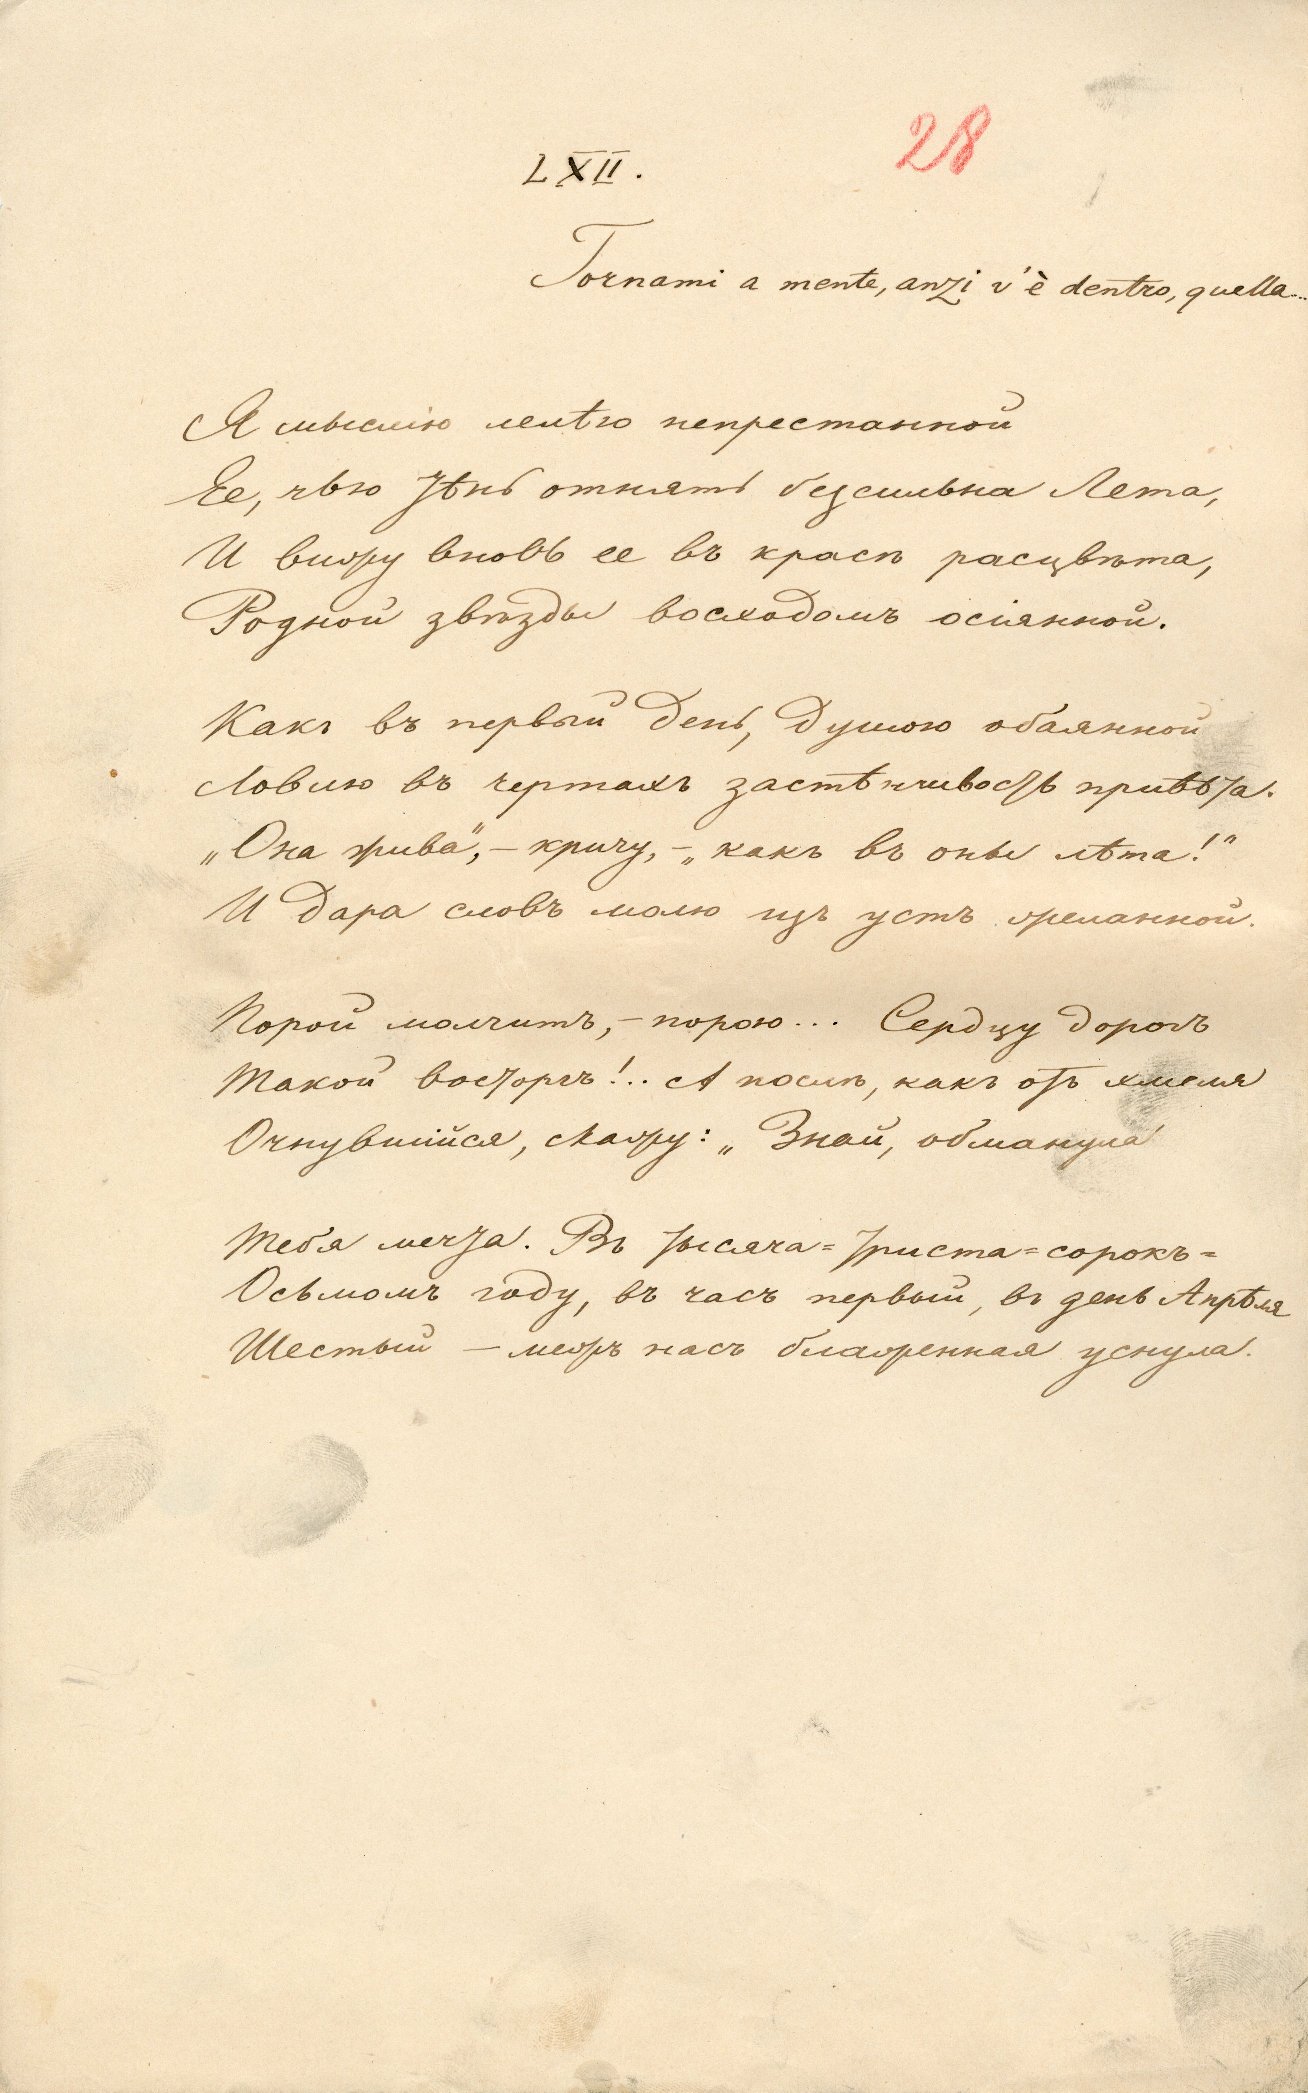 28
LXII.
Tornami a mente, anzi v'è dentro, quella...
Я мыслію лелѣю непрестанной
Ее, чью тѣнь отнять безсильна Лета,
И вижу вновь ее въ красѣ расцвѣта,
Родной звѣзды восходомъ осіянной.
Какъ въ первый день, душою обаянной
Ловлю въ чертахъ застѣнчивость привѣта.
„Она жива“, – кричу, – „какъ въ оны лѣта!“
И дара словъ молю изъ устъ желанной.
Порой молчитъ, – порою... Сердцу дорогъ
Такой восторгъ!.. А послѣ, какъ отъ хмеля
Очнувшійся, скажу: „Знай, обманула
Тебя мечта. Въ тысяча=триста=сорокъ=
Осьмомъ году, въ часъ первый, въ день Апрѣля
Шестый – межъ насъ блаженная уснула.